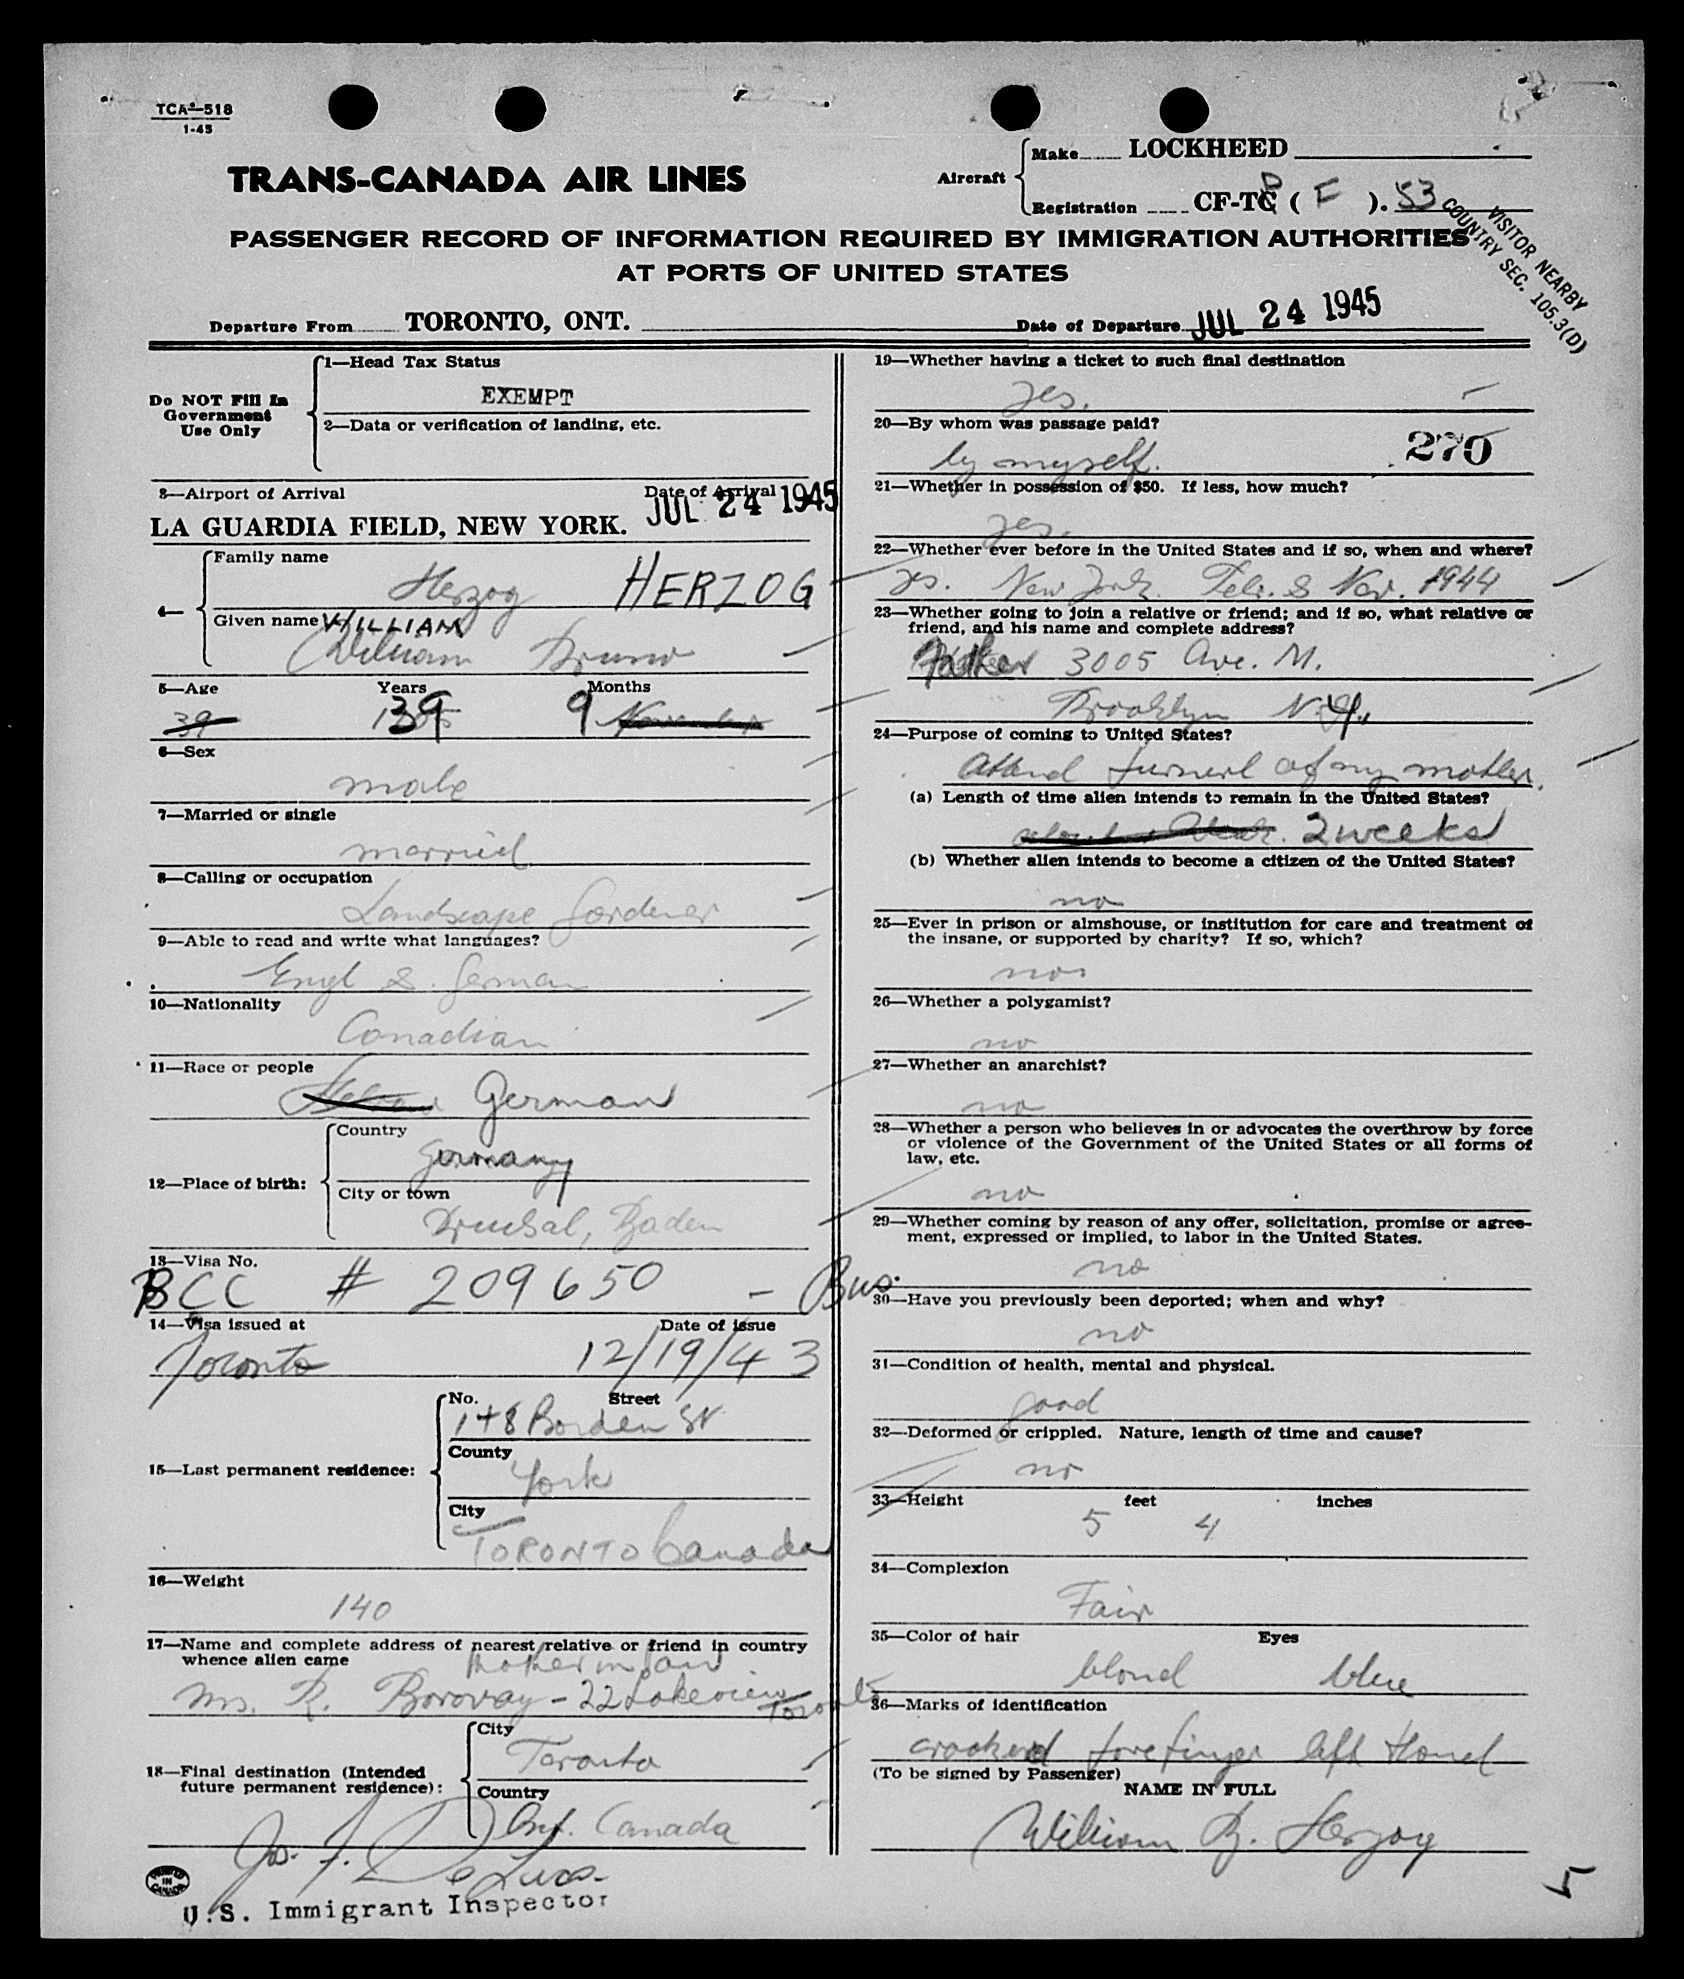 TCA-518
1-45
TRANS-CANADA AIR LINES
Aircraft
Make LOCKHEED
Registration CF-TC ( F ). 53
PASSENGER RECORD OF INFORMATION REQUIRED BY IMMIGRATION AUTHORITIES
AT PORTS OF UNITED STATES
VISITOR NEARBY
COUNTRY SEC. 105.3(D)
Departure From TORONTO, ONT. Date of Departure JUL 24 1945
Do NOT Fill In
Government
Use Only
1—Head Tax Status
EXEMPT
2—Data or verification of landing, etc.
3—Airport of Arrival Date of Arrival
LA GUARDIA FIELD, NEW YORK. JUL 24 1945
4—
Family name
Herzog HERZOG
Given name WILLIAM
William Bruno
5—Age Years Months
39 39 9 November
6—Sex
male
7—Married or single
married
8—Calling or occupation
Landscape Gardener
9—Able to read and write what languages?
Engl & German
10—Nationality
Canadian
11—Race or people
German
12—Place of birth:
Country
Germany
City or town
Bruchsal, Baden
13—Visa No.
BCC # 209650 - Bus.
14—Visa issued at Date of issue
Toronto 12/19/43
15—Last permanent residence:
No. Street
148 Borden St
County
York
City
TORONTO Canada
16—Weight
140
17—Name and complete address of nearest relative or friend in country
whence alien came
Mother in law
Mrs. R. Borovay - 22 Lakeview Toronto
18—Final destination (Intended
future permanent residence):
City
Toronto
Country
Ont. Canada
Jos. F. De
U.S. Immigrant Inspector
PRINTED
IN
CANADA
19—Whether having a ticket to such final destination
yes.
20—By whom was passage paid?
by myself. 270
21—Whether in possession of $50. If less, how much?
yes.
22—Whether ever before in the United States and if so, when and where?
yes. New York. Febr. & Nov. 1944
23—Whether going to join a relative or friend; and if so, what relative or
friend, and his name and complete address?
Father 3005 Ave. M.
Brooklyn N.Y.
24—Purpose of coming to United States?
Attend funeral of my mother.
(a) Length of time alien intends to remain in the United States?
2 weeks
(b) Whether alien intends to become a citizen of the United States?
no
25—Ever in prison or almshouse, or institution for care and treatment of
the insane, or supported by charity? If so, which?
no
26—Whether a polygamist?
no
27—Whether an anarchist?
no
28—Whether a person who believes in or advocates the overthrow by force
or violence of the Government of the United States or all forms of
law, etc.
no
29—Whether coming by reason of any offer, solicitation, promise or agree-
ment, expressed or implied, to labor in the United States.
no
30—Have you previously been deported; when and why?
no
31—Condition of health, mental and physical.
good
32—Deformed or crippled. Nature, length of time and cause?
no
33—Height feet inches
5 4
34—Complexion
Fair
35—Color of hair Eyes
blond blue
36—Marks of identification
crooked forefinger left Hand
(To be signed by Passenger)
NAME IN FULL
William B. Herzog
5